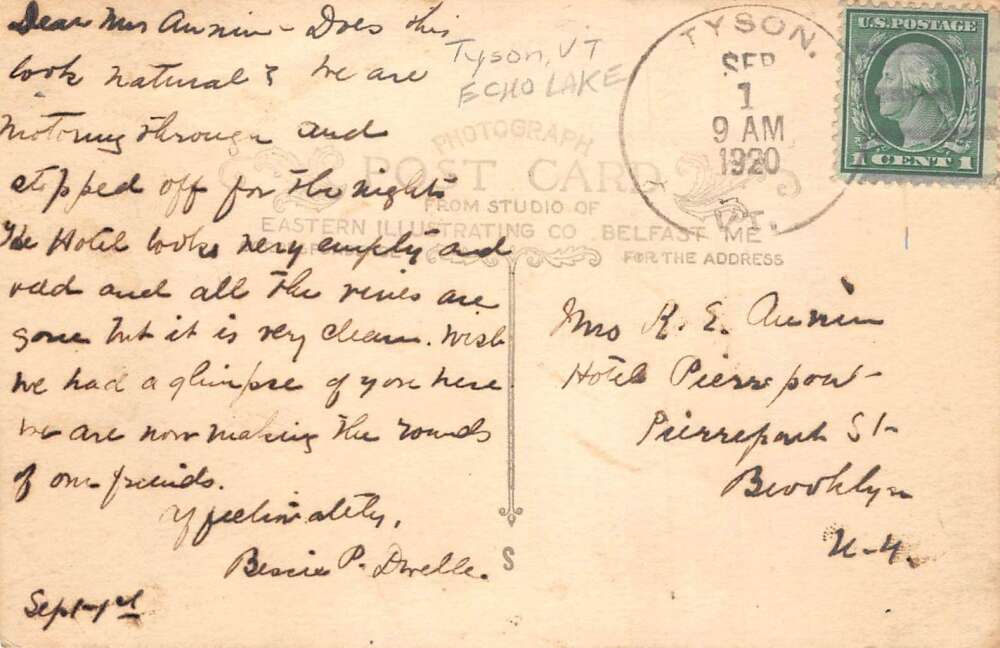 Dear Mrs Aunin - Does this
look natural? We are
motoring through and
stopped off for the night.
The Hotel looks very empty and
odd and all the vines are
gone but it is very clean. Wish
we had a glimpse of you here.
We are now making the rounds
of our friends.
Affectionately,
Bessie P. Dwelle.
Sept 1st
Tyson, VT
ECHO LAKE
PHOTOGRAPH
POST CARD
FROM STUDIO OF
EASTERN ILLUSTRATING CO BELFAST ME
FOR THE ADDRESS
S
TYSON.
SEP
1
9 AM
1920
VT.
U.S. POSTAGE
1 CENT 1
Mrs R. E. Aunin
Hotel Pierrepont
Pierrepont St
Brooklyn
N-Y.